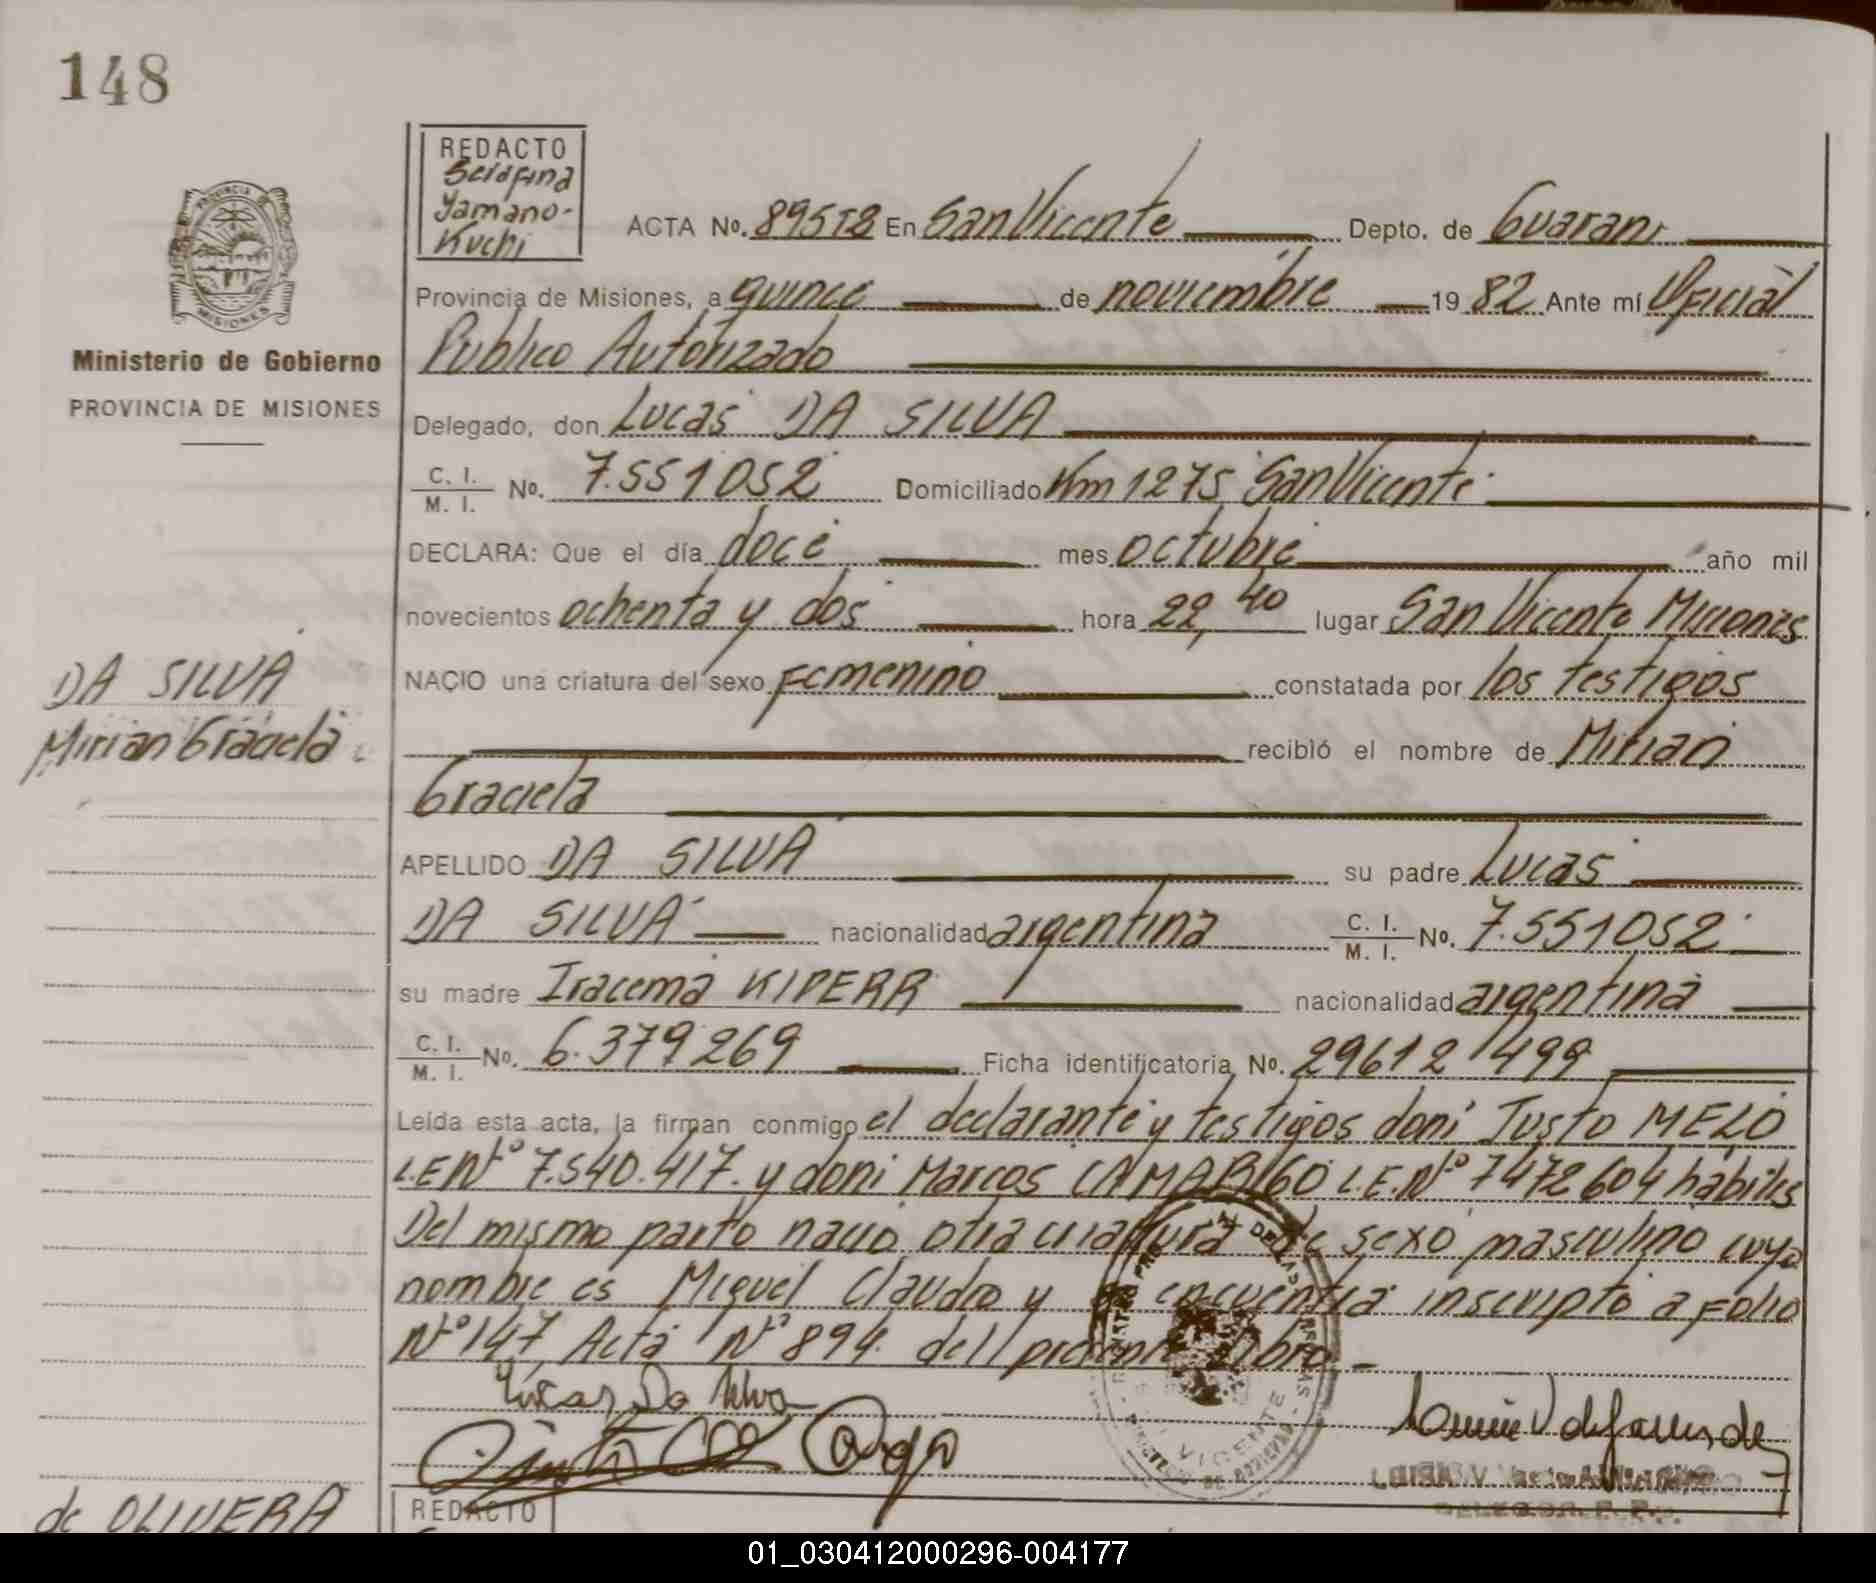 148
REDACTO
Serafina
Yamano-
Kuchi
ACTA No. 895 T2 En San Vicente Depto. de Guarani
PROVINCIA DE
MISIONES
Provincia de Misiones, a quince de noviembre 1982 Ante mí Oficial
Publico Autorizado
Ministerio de Gobierno
PROVINCIA DE MISIONES
Delegado, don Lucas DA SILVA
C. I.
M. I. No. 7.551052 Domiciliado Km 1275 San Vicente
DECLARA: Que el día doce mes octubre año mil
novecientos ochenta y dos hora 22,40 lugar San Vicente Misiones
DA SILVA
Mirian Graciela
NACIO una criatura del sexo femenino constatada por los testigos
recibió el nombre de Mirian
Graciela
APELLIDO DA SILVA su padre Lucas
DA SILVA nacionalidad argentina C. I.
M. I. No. 7.551052
su madre Iracema KIPERR nacionalidad argentina
C. I.
M. I. No. 6.379269 Ficha identificatoria No. 29612499
Leída esta acta, la firman conmigo el declarante y testigos don: Justo MELO
L.E.Nº 7.540.417. y don: Marcos CAMARGO L.E.Nº 7472604 habiles
Del mismo parto nacio otra criatura de sexo masculino cuyo
nombre es Miguel Claudio y se encuentra inscripto a folio
Nº 147 Acta Nº 894. del presente libro.-
Lucas Da Silva
VICENTE
REDACTO
de OLIVERA
01_030412000296-004177